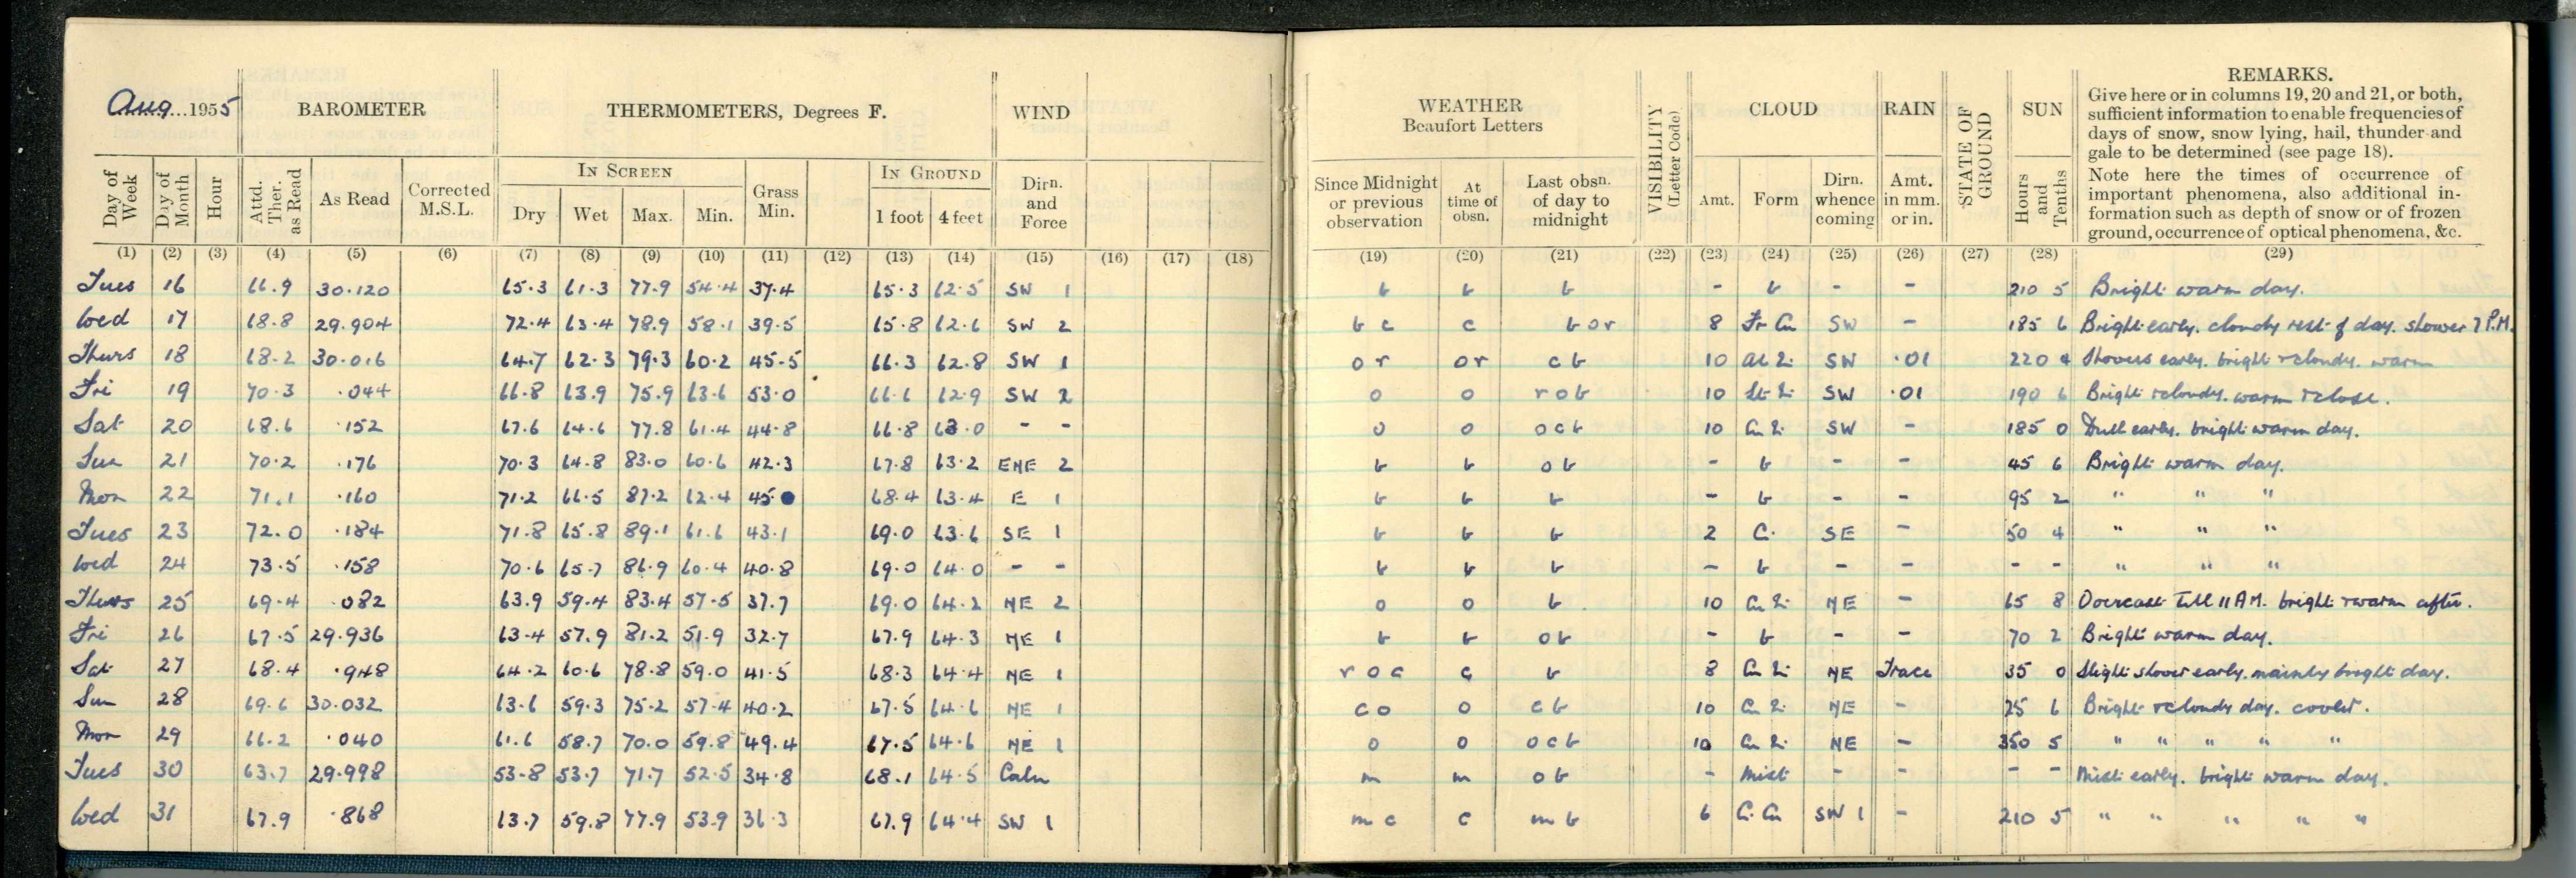 Aug. 1955 BAROMETER THERMOMETERS, Degrees F. WIND WEATHER Beaufort Letters VISIBILITY (Letter Code) CLOUD RAIN STATE OF GROUND SUN REMARKS.
Give here or in columns 19, 20 and 21, or both,
sufficient information to enable frequencies of
days of snow, snow lying, hail, thunder and
gale to be determined (see page 18).
Note here the times of occurrence of
important phenomena, also additional in-
formation such as depth of snow or of frozen
ground, occurrence of optical phenomena, &c.
Day of Week Day of Month Hour Attd. Ther. as Read As Read Corrected M.S.L. IN SCREEN Dry Wet Max. Min. Grass Min. IN GROUND 1 foot 4 feet Dirn. and Force Since Midnight or previous observation At time of obsn. Last obsn. of day to midnight Amt. Form Dirn. whence coming Amt. in mm. or in. Hours and Tenths
(1) (2) (3) (4) (5) (6) (7) (8) (9) (10) (11) (12) (13) (14) (15) (16) (17) (18) (19) (20) (21) (22) (23) (24) (25) (26) (27) (28) (29)
Tues 16 66.9 30.120 65.3 61.3 77.9 54.4 37.4 65.3 62.5 SW 1 b b b - b - - 210 5 Bright warm day.
Wed 17 68.8 29.904 72.4 63.4 78.9 58.1 39.5 65.8 62.6 SW 2 b c c b o r 8 Fr Cu SW - 185 6 Bright early. cloudy rest of day. shower 7 P.M.
Thurs 18 68.2 30.016 64.7 62.3 79.3 60.2 45.5 66.3 62.8 SW 1 o r o r c b 10 SW .01 220 4 Showers early. bright & cloudy. warm
Fri 19 70.3 .044 66.8 63.9 75.9 63.6 53.0 66.6 62.9 SW 2 o o r o b 10 SW .01 190 6 Bright & cloudy. warm & close.
Sat 20 68.6 .152 67.6 64.6 77.8 61.4 44.8 66.8 63.0 - - o o o c b 10 SW - 185 0 Dull early. bright warm day.
Sun 21 70.2 .176 70.3 64.8 83.0 60.6 42.3 67.8 63.2 ENE 2 b b o b - b - - 45 6 Bright warm day.
Mon 22 71.1 .160 71.2 66.5 87.2 62.4 45. 68.4 63.4 E 1 b b b - b - - 95 2 " " "
Tues 23 72.0 .184 71.8 65.8 89.1 61.6 43.1 69.0 63.6 SE 1 b b b 2 C. SE - 50 4 " " "
Wed 24 73.5 .158 70.6 65.7 86.9 60.4 40.8 69.0 64.0 - - b b b - b - - - - " " "
Thurs 25 69.4 .082 63.9 59.4 83.4 57.5 37.7 69.0 64.2 NE 2 o o b 10 NE - 65 8 Overcast till 11 AM. bright & warm after.
Fri 26 67.5 29.936 63.4 57.9 81.2 51.9 32.7 67.9 64.3 NE 1 b b o b - b - - 70 2 Bright warm day.
Sat 27 68.4 .948 64.2 60.6 78.8 59.0 41.5 68.3 64.4 NE 1 r o c c b 8 NE Trace 35 0 Slight shower early. mainly bright day.
Sun 28 69.6 30.032 63.6 59.3 75.2 57.4 40.2 67.5 64.6 NE 1 c o o c b 10 NE - 25 6 Bright & cloudy day. cooler.
Mon 29 66.2 .040 61.6 58.7 70.0 59.8 49.4 67.5 64.6 NE 1 o o o c b 10 NE - 350 5 " " " " "
Tues 30 63.7 29.998 53.8 53.7 71.7 52.5 34.8 68.1 64.5 Calm m m o b - Mist - - - - Mist early. bright warm day.
Wed 31 67.9 .868 63.7 59.8 77.9 53.9 36.3 67.9 64.4 SW 1 m c c m b 6 C. Cu SW 1 - 210 5 " " " " "